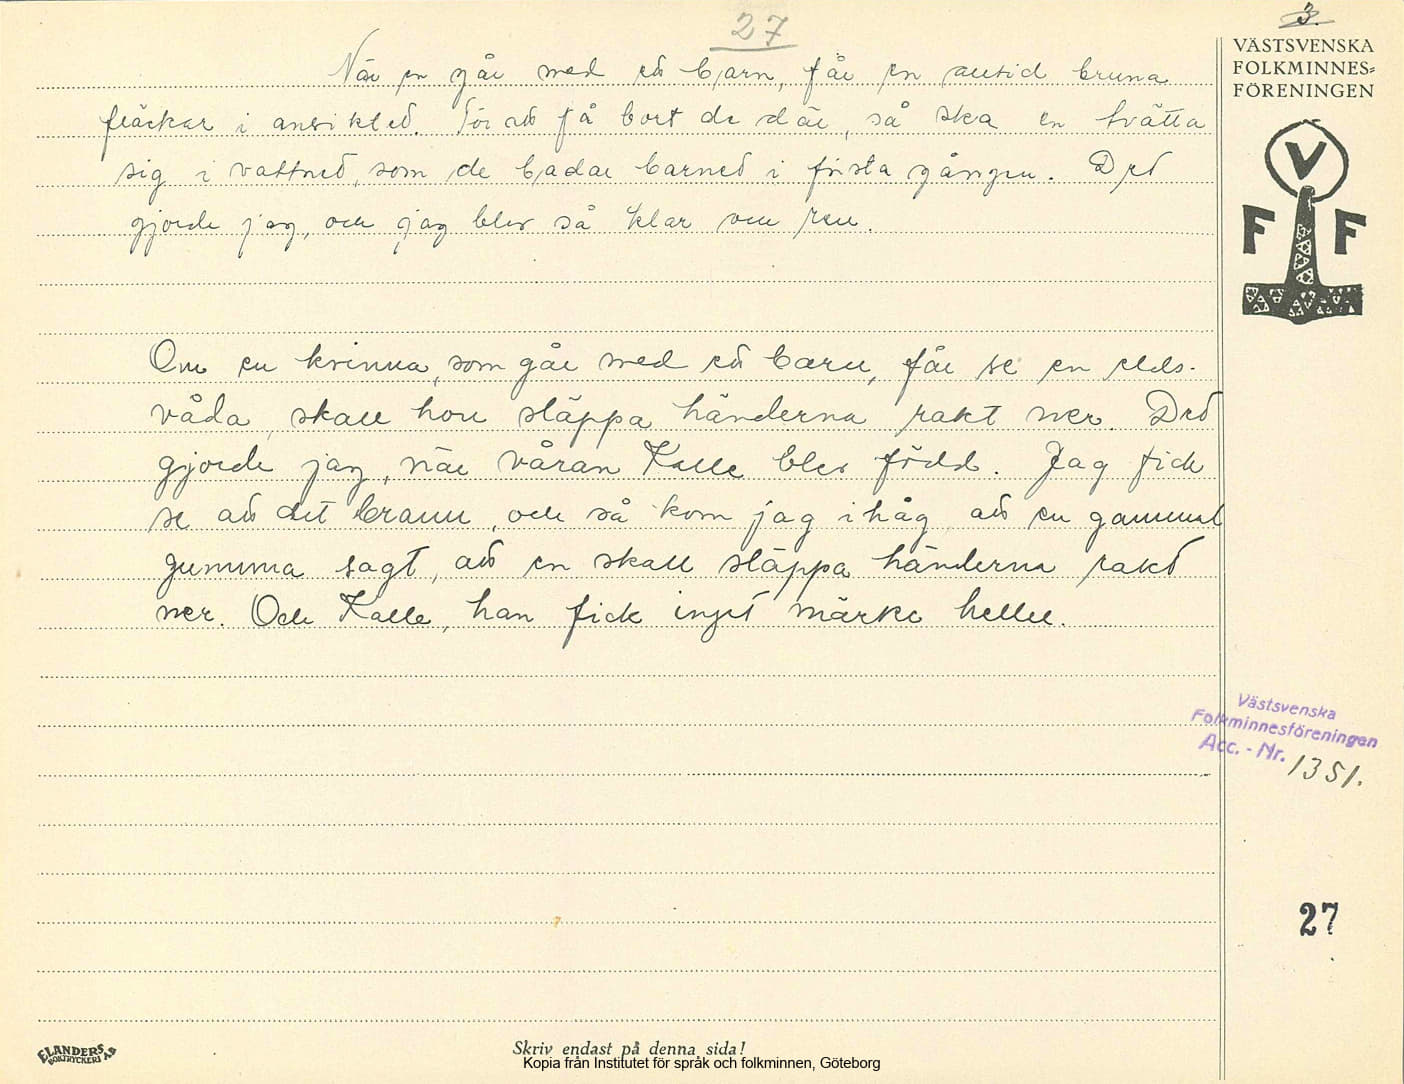 3.
27
VÄSTSVENSKA
FOLKMINNES=
FÖRENINGEN
V
F F
När en går med ett barn, får en alltid bruna
fläckar i ansikted. För att få bort de där, så ska en tvätta
sig i vattned, som de badar barned i första gången. Det
gjorde jag, och jag blev så klar och ren.
Om en kvinna, som går med ett barn, får se en elds-
våda, skall hon släppa händerna rakt ner. Det
gjorde jag, när våran Kalle blev född. Jag fick
se att det brann, och så kom jag ihåg att en gammal
gumma sagt, att en skall släppa händerna rakt
ner. Och Kalle, han fick inget märke heller.
Västsvenska
Folkminnesföreningen
Acc. - Nr. 1351.
27
ELANDERS
BOKTRYCKERI AB
Skriv endast på denna sida!
Kopia från Institutet för språk och folkminnen, Göteborg